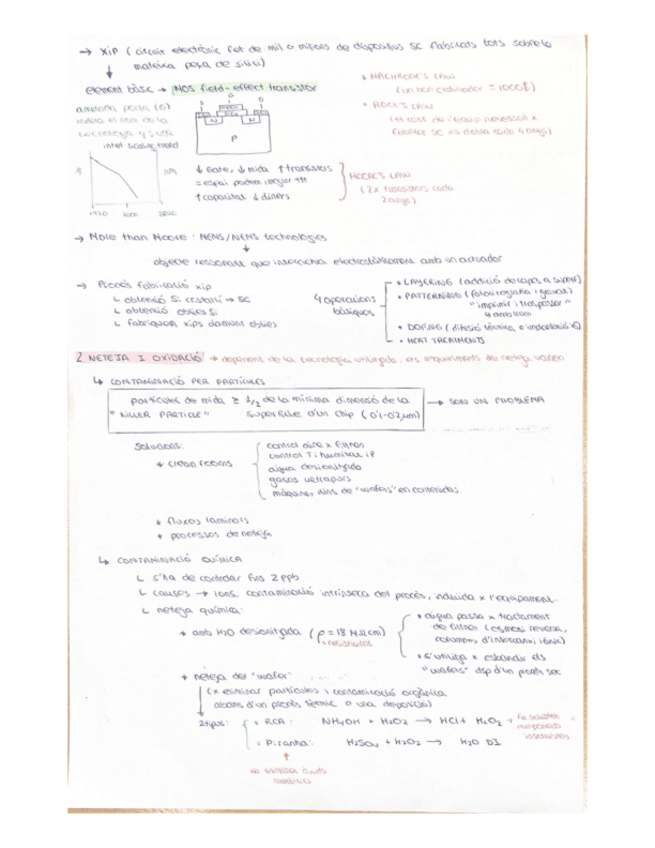 → XIP (circuit electrònic fet de mil o milions de dispositius SC fabricats tots sobre la
mateixa peça de silici)
element bàsic → MOS field-effect transistor
amplada porta (G)
indica el nom de la
tecnologia q s'usa
intel scaling trend
1970 2000 2020
S G D
N N
P
↓ Gate, ↓ mida ↑ transistors
= espai podem integrar
↑ capacitat ↓ diners
MOORE'S LAW
(2x transistors cada
2 anys)
• MACHRONE'S LAW
(un bon ordinador = 1000$)
• ROCK'S LAW
(el cost de l'equip necessari x
fabricar SC es dobla cada 4 anys)
→ More than Moore: MEMS/NEMS technologies
objecte ressonant que interactua electrostàticament amb un actuador
→ Procés fabricació xip
↳ obtenció Si cristal·lí → SC
↳ obtenció oblies Si
↳ fabriquem xips damunt oblies
4 operacions
bàsiques
• LAYERING (addició de capes a superf)
• PATTERNING (fotolitografia i gravat)
"imprimir i traspassar"
• DOPING (difusió tèrmica, o implantació
• HEAT TREATMENTS
2 NETEJA I OXIDACIÓ → depenent de la tecnologia utilitzada, els requeriments de neteja varien
↳ CONTAMINACIÓ PER PARTÍCULES
partícules de mida ≥ 1/2 de la mínima dimensió de la
"KILLER PARTICLE" superfície d'un chip (0'1-0'2 μm)
→ SÓN UN PROBLEMA
Solucions:
* clean rooms
control aire x filtres
control T i humitat i P
aigua desionitzada
gasos ultrapurs
màquines dins de "wafers" en contenidors
* fluxos laminars
* processos de neteja
↳ CONTAMINACIÓ QUÍMICA
↳ s'ha de controlar fins 2 ppb
↳ causes → ions, contaminació intrínseca del procés, induïda x l'equipament
↳ neteja química:
* amb H2O desionitzada (ρ = 18 MΩcm)
resistivitat
• aigua passa x tractament
de filtres (osmosi reversa,
columnes d'intercanvi iònic)
• s'utilitza x esbandir els
"wafers" dsp d'un procés sec
* neteja del "wafer"
(x eliminar partícules i contaminació orgànica
abans d'un procés tèrmic o una deposició)
2 tipus:
• RCA: NH4OH + H2O2 → HCl + H2O2 →
• Piranha: H2SO4 + H2O2 → H2O DI